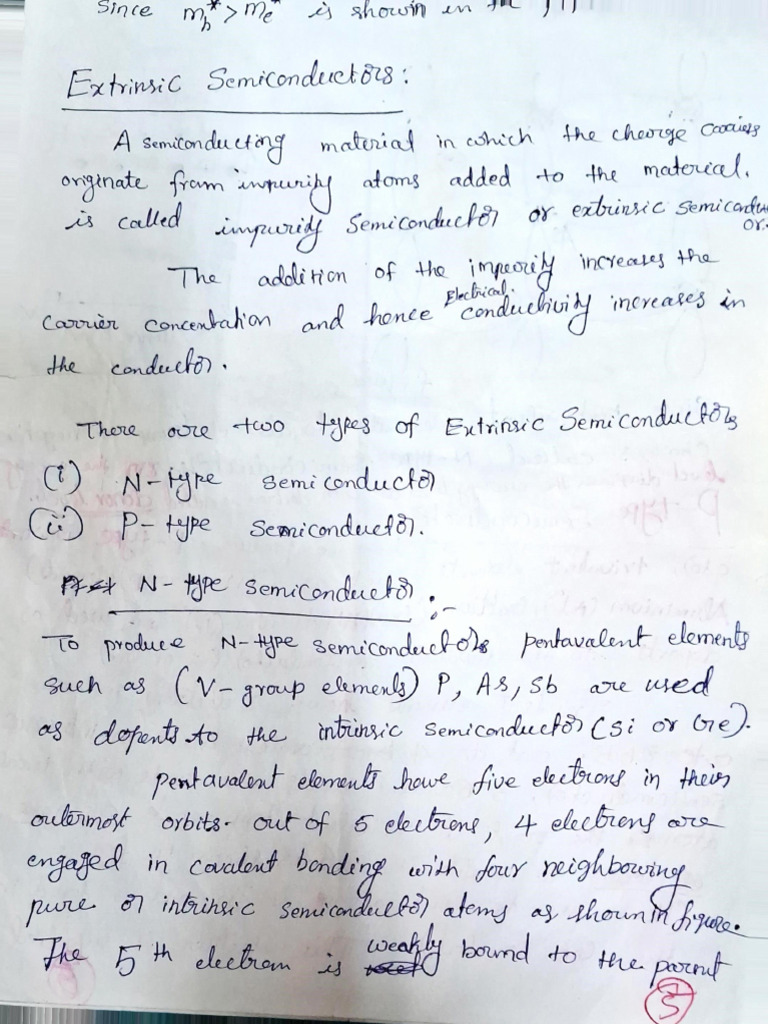 Since m_h* > m_e* is shown in the
Extrinsic Semiconductors:
A semiconducting material in which the charge carriers
originate from impurity atoms added to the material.
is called impurity semiconductor or extrinsic semiconductor.
The addition of the impurity increases the
Electrical.
carrier concentration and hence conductivity increases in
the conductor.
There are two types of Extrinsic Semiconductors
(i) N-type semiconductor
(ii) P-type semiconductor.
N-type semiconductor :-
To produce N-type semiconductors pentavalent elements
such as (V-group elements) P, As, Sb are used
as dopents to the intrinsic semiconductor (Si or Ge).
Pentavalent elements have five electrons in their
outermost orbits. out of 5 electrons, 4 electrons are
engaged in covalent bonding with four neighbowing
pure or intrinsic semiconductor atoms as shown in figure.
The 5th electron is weakly bound to the parent
5